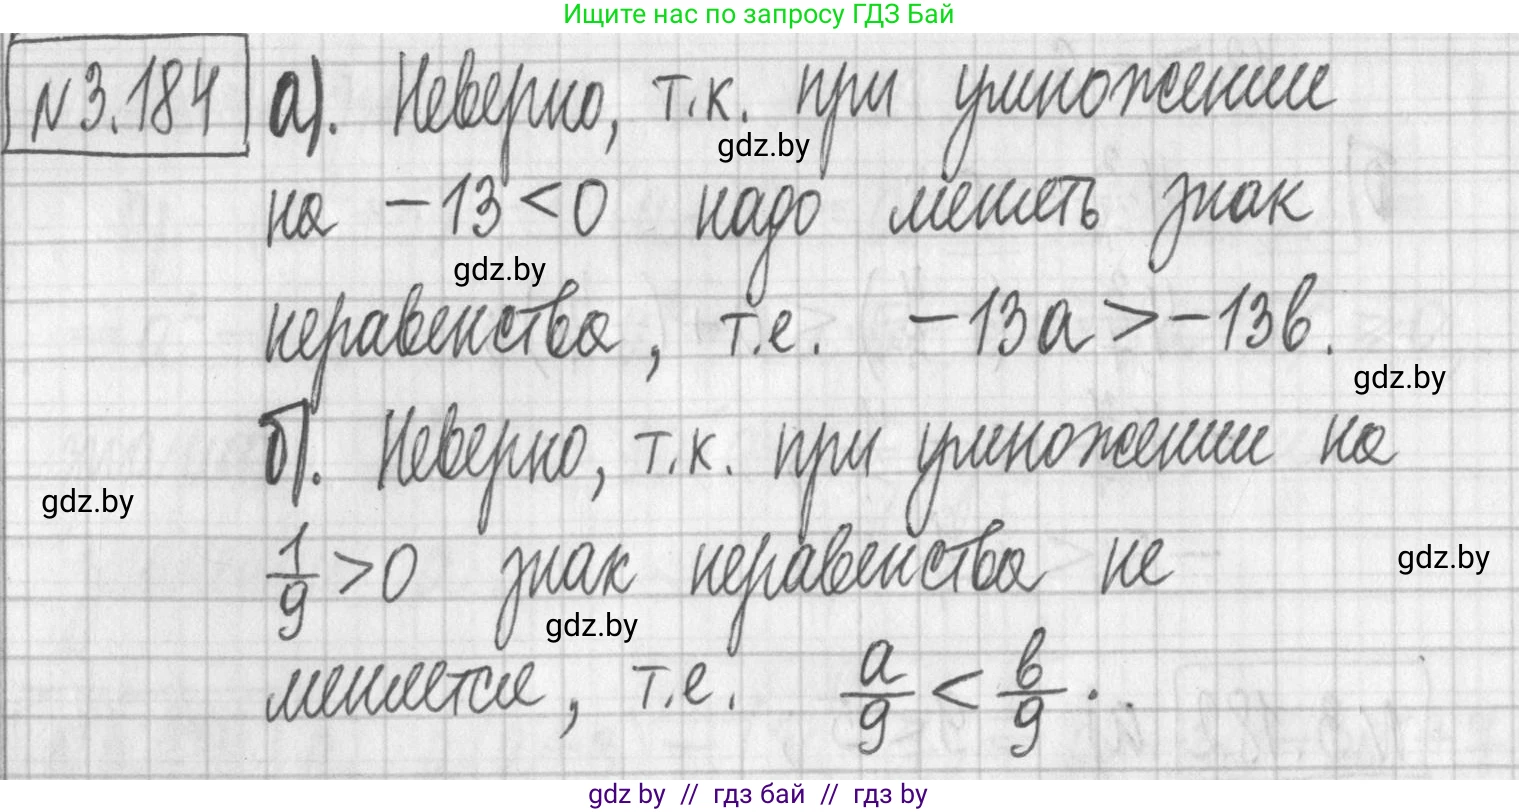 Ищите нас по запросу ГДЗ Бай
N3.184 а). Неверно, т.к. при умножении
gdz.by
на −13<0 надо менять знак
gdz.by
неравенства, т.е. −13a>−13b.
gdz.by
б). Неверно, т.к. при умножении на
gdz.by
1/9>0 знак неравенства не
gdz.by
gdz.by
меняется, т.е. a/9 < b/9.
gdz.by // гдз бай // гдз by